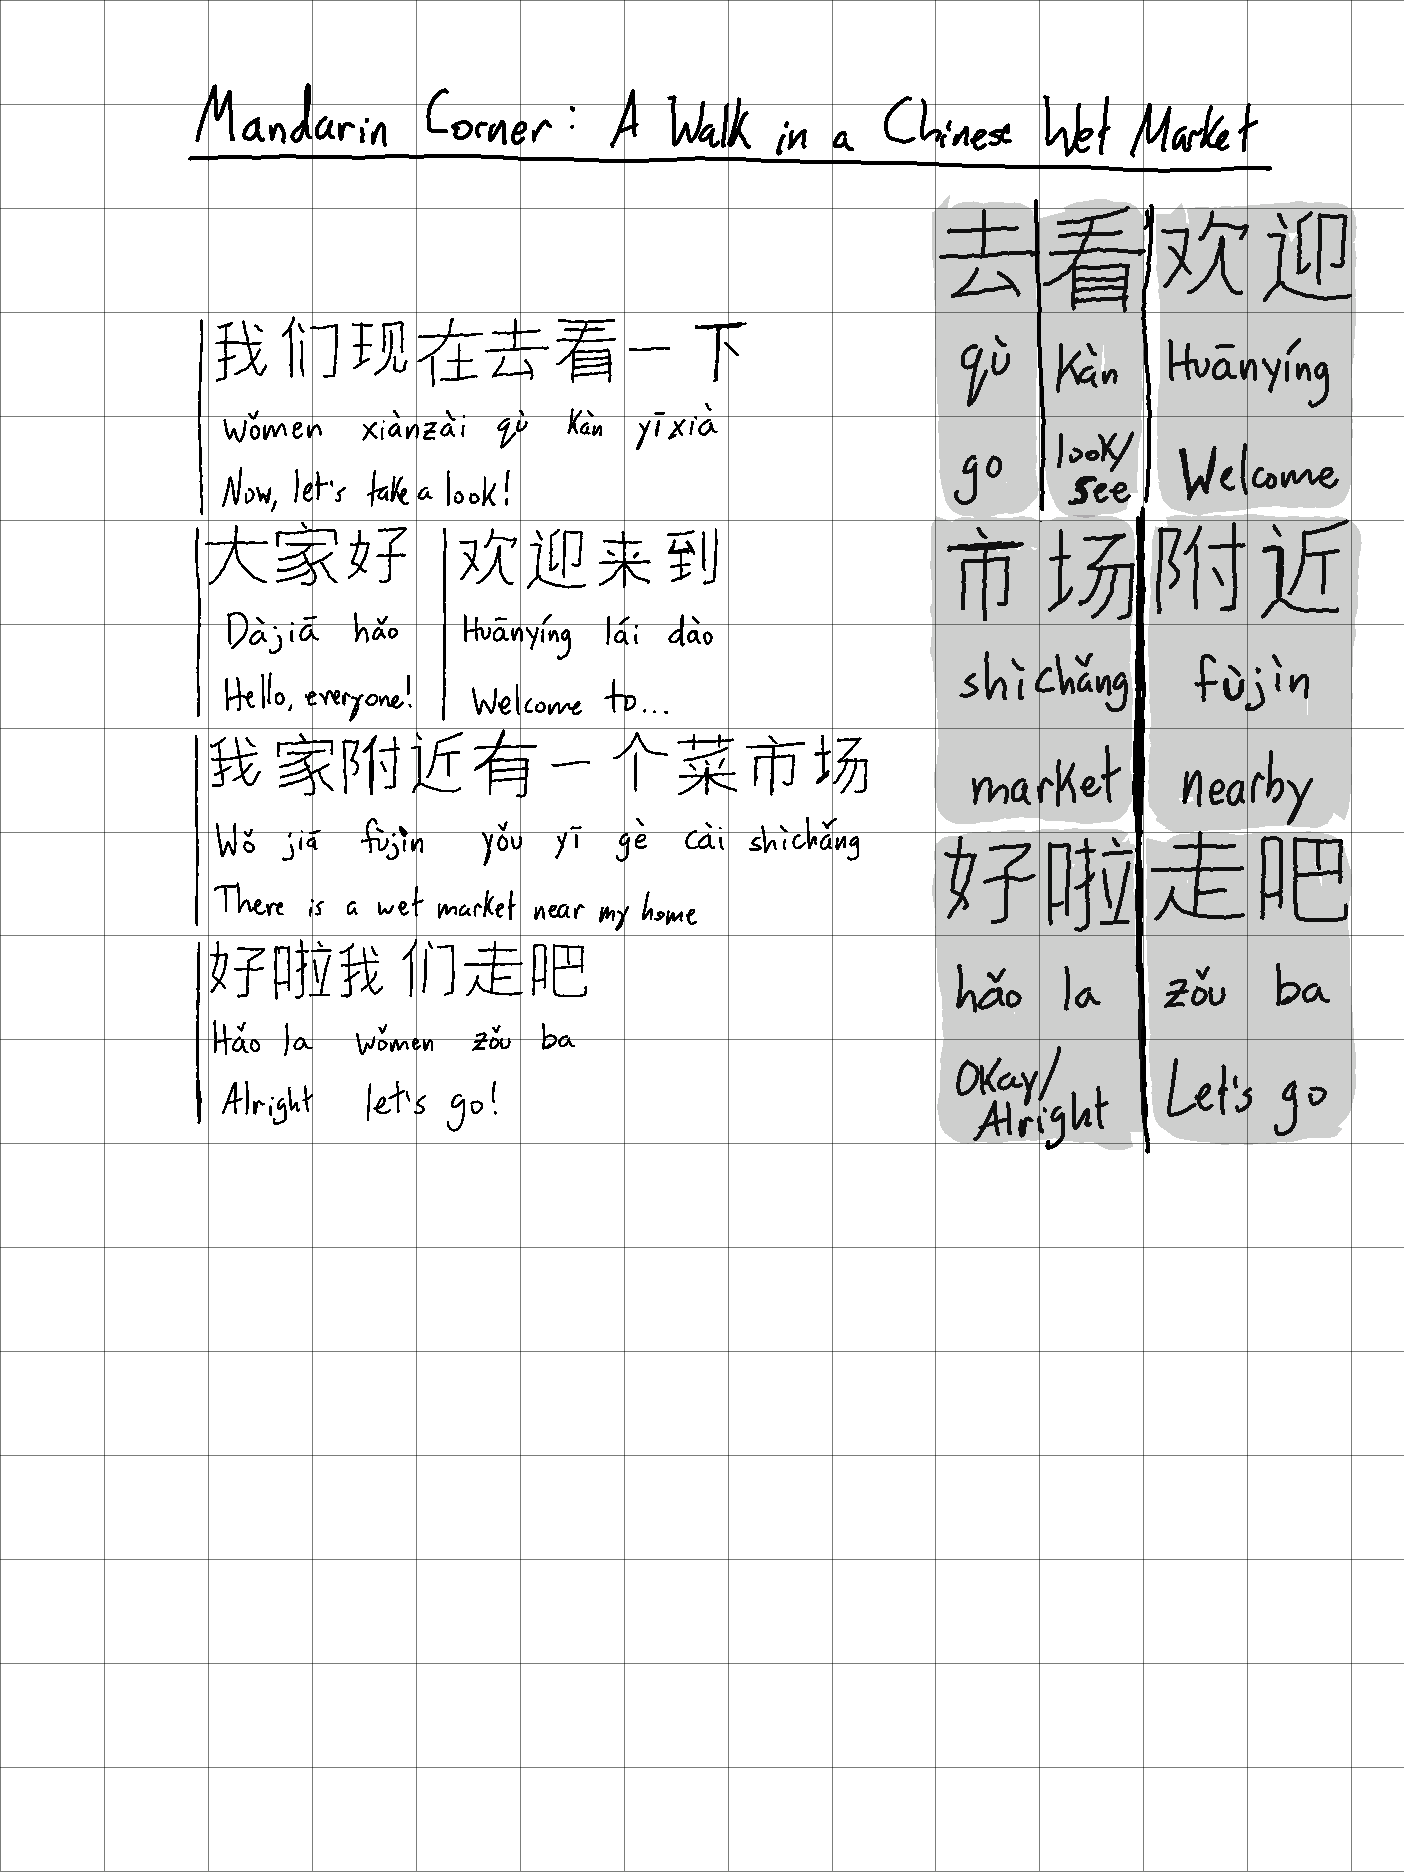 Mandarin Corner: A Walk in a Chinese Wet Market
我们现在去看一下
Wǒmen xiànzài qù kàn yīxià
Now, let's take a look!
大家好
Dàjiā hǎo
Hello, everyone!
欢迎来到
Huānyíng lái dào
Welcome to...
我家附近有一个菜市场
Wǒ jiā fùjìn yǒu yī gè cài shìchǎng
There is a wet market near my home
好啦我们走吧
Hǎo la wǒmen zǒu ba
Alright let's go!
去
qù
go
看
kàn
look/
see
欢迎
Huānyíng
Welcome
市场
shìchǎng
market
附近
fùjìn
nearby
好啦
hǎo la
Okay/
Alright
走吧
zǒu ba
Let's go